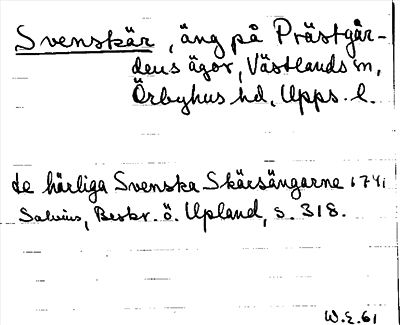 Svenskär, äng på Prästgår-
dens ägor, Västlands sn,
Örbyhus hd, Upps. l.
de härliga Svenska Skärsängarne 1741
Salvius, Beskr. ö. Upland, s. 318.
W.E. 61